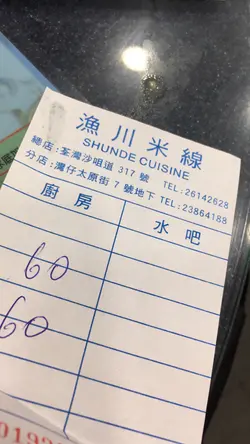 漁川米線
SHUNDE CUISINE
總店：荃灣沙咀道 317 號 TEL:26142628
分店：灣仔太原街 7 號地下 TEL:23864188
廚房 水吧
60
60
0192